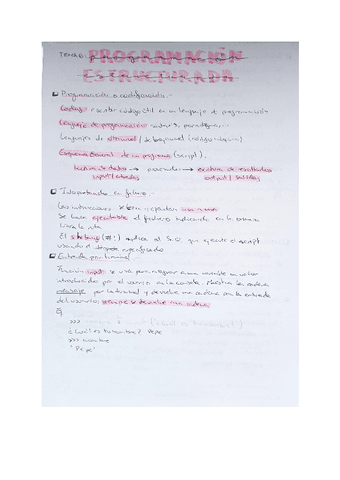 Tema 6: PROGRAMACIÓN
ESTRUCTURADA
Programación o codificación.-
Coding: escribir código útil en un lenguaje de programación
Lenguaje de programación: sintaxis, paradigma...
Lenguajes de alto nivel / de bajo nivel (código máquina)
Esquema General de un programa (script).
lectura de datos → procesado → escritura de resultados
input / entradas output / salidas
Interpretado en fichero.-
Las instrucciones se leen y ejecutan una a una
Se hace ejecutable el fichero indicando en la
línea la ruta
El shebang (#!) indica al S.O que ejecute el script
usando el intérprete especificado
Entrada por terminal
Función input: se usa para asignar a una variable un valor
introducido por el usuario en la consola. Muestra la cadena
mensaje por la terminal y devuelve una cadena con la entrada
del usuario, siempre se devuelve una cadena
Ej
>>>
¿Cuál es tu nombre? Pepe
>>> nombre
'Pepe'